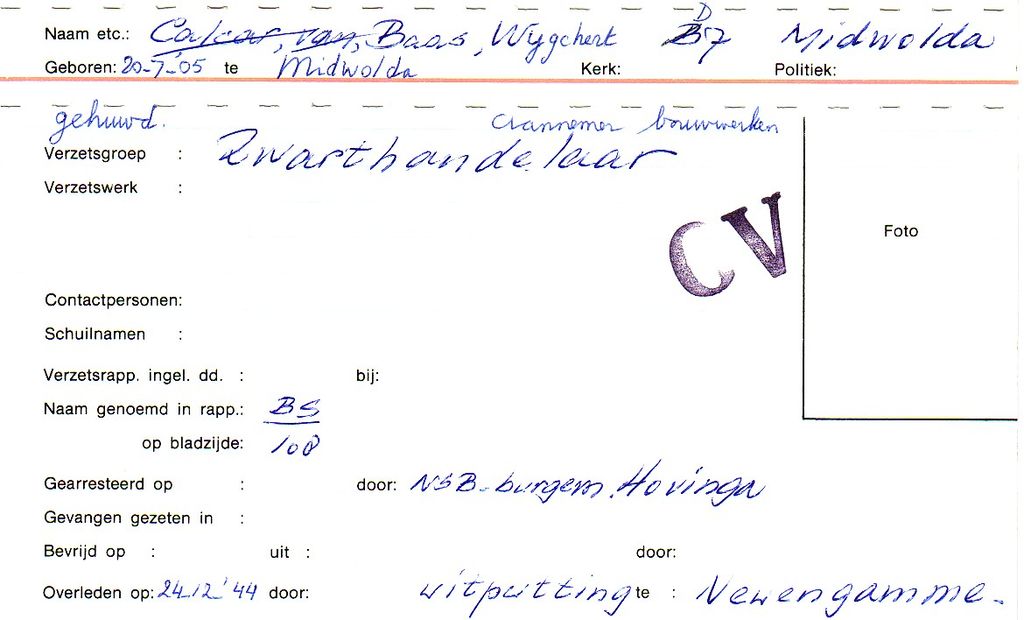 Naam etc.: Calcar, van, Baas, Wygchert D7 Midwolda
Geboren: 20-7-'05 te Midwolda Kerk: Politiek:
gehuwd. aannemer bouwwerken
Verzetsgroep : Zwarthandelaar
Verzetswerk :
CV
Foto
Contactpersonen:
Schuilnamen :
Verzetsrapp. ingel. dd. : bij:
Naam genoemd in rapp.: BS
op bladzijde: 108
Gearresteerd op : door: NSB-burgem. Hovinga
Gevangen gezeten in :
Bevrijd op : uit : door:
Overleden op: 24-12-'44 door: uitputting te : Neuengamme.